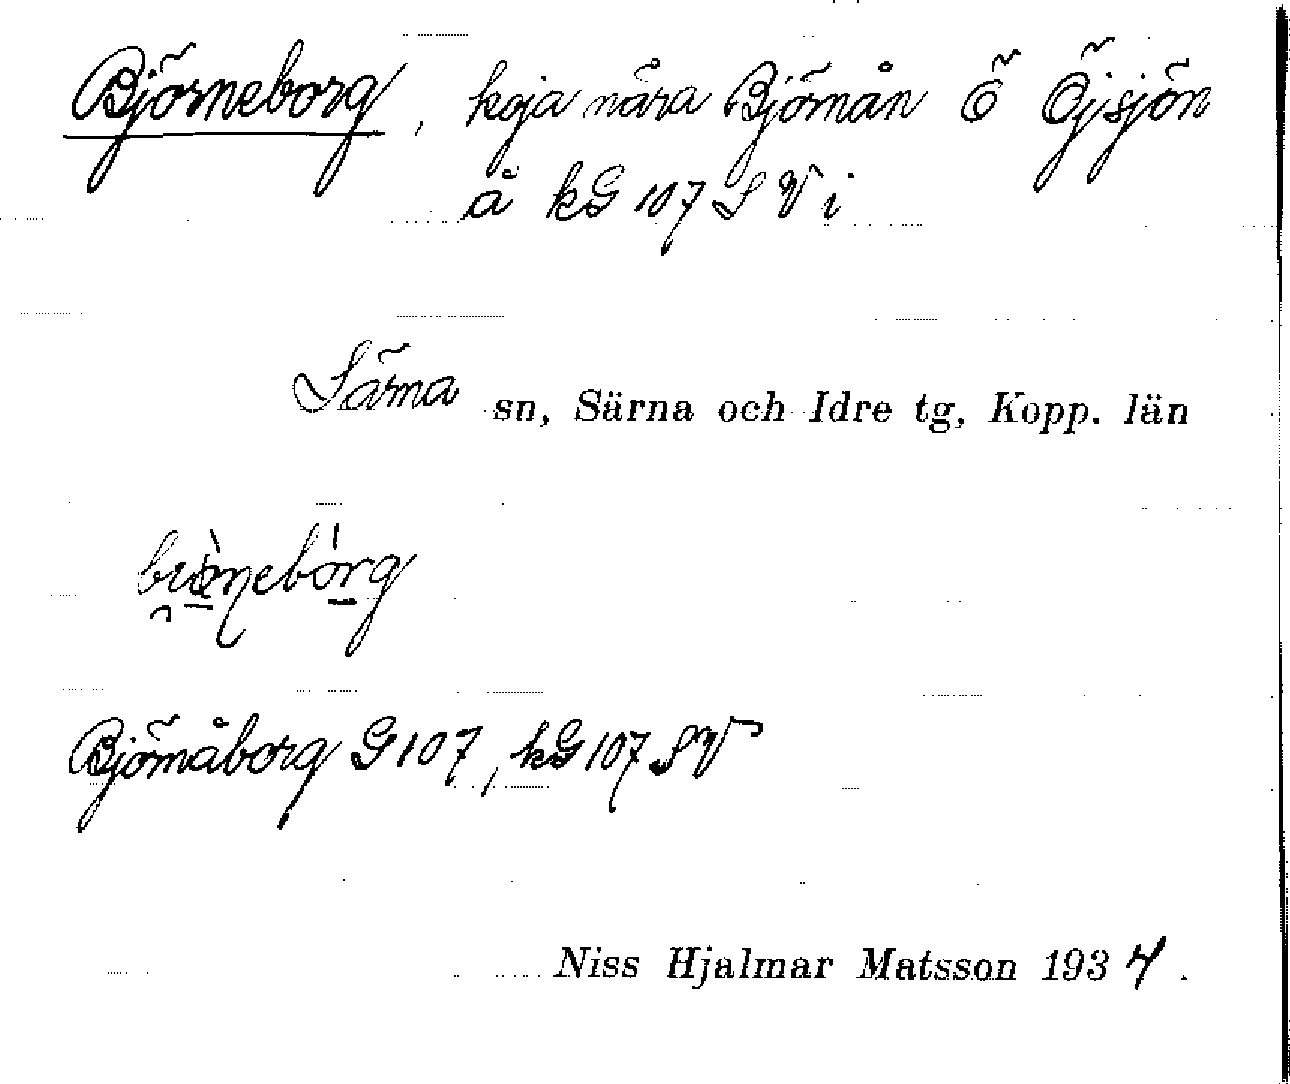 Björneborg, koja nära Björnån Ö Öjsjön
å kG 107 S V i
Särna sn, Särna och Idre tg, Kopp. län
Björnåborg G 107, kG 107 SV
Niss Hjalmar Matsson 1934.